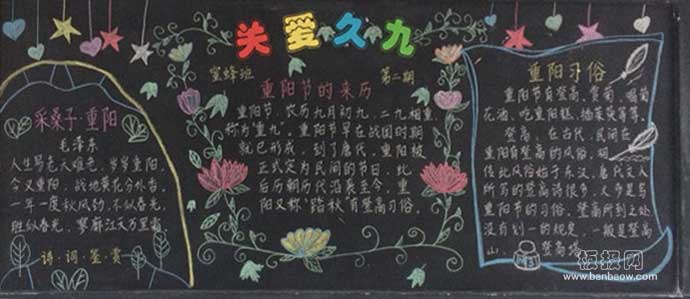 关爱久九
蜜蜂班 第二期
采桑子·重阳
毛泽东
人生易老天难老,岁岁重阳,
今又重阳,战地黄花分外香。
一年一度秋风劲,不似春光,
胜似春光,寥廓江天万里霜。
诗·词·鉴·赏
重阳节的来历
重阳节,农历九月初九,二九相重,
称为"重九"。重阳节早在战国时期
就已形成,到了唐代,重阳被
正式定为民间的节日,此
后历朝历代沿袭至今,重
阳又称"踏秋"有登高习俗。
重阳习俗
重阳节有登高、赏菊、喝菊
花酒、吃重阳糕、插茱萸等等。
登高,在古代,民间在
重阳有登高的风俗,相
传此风俗始于东汉。唐代文人
所写的登高诗很多,大多是写
重阳节的习俗。登高所到之处
没有划一的规定,一般是登高
山、登高塔。
板报网
www.banbaow.com